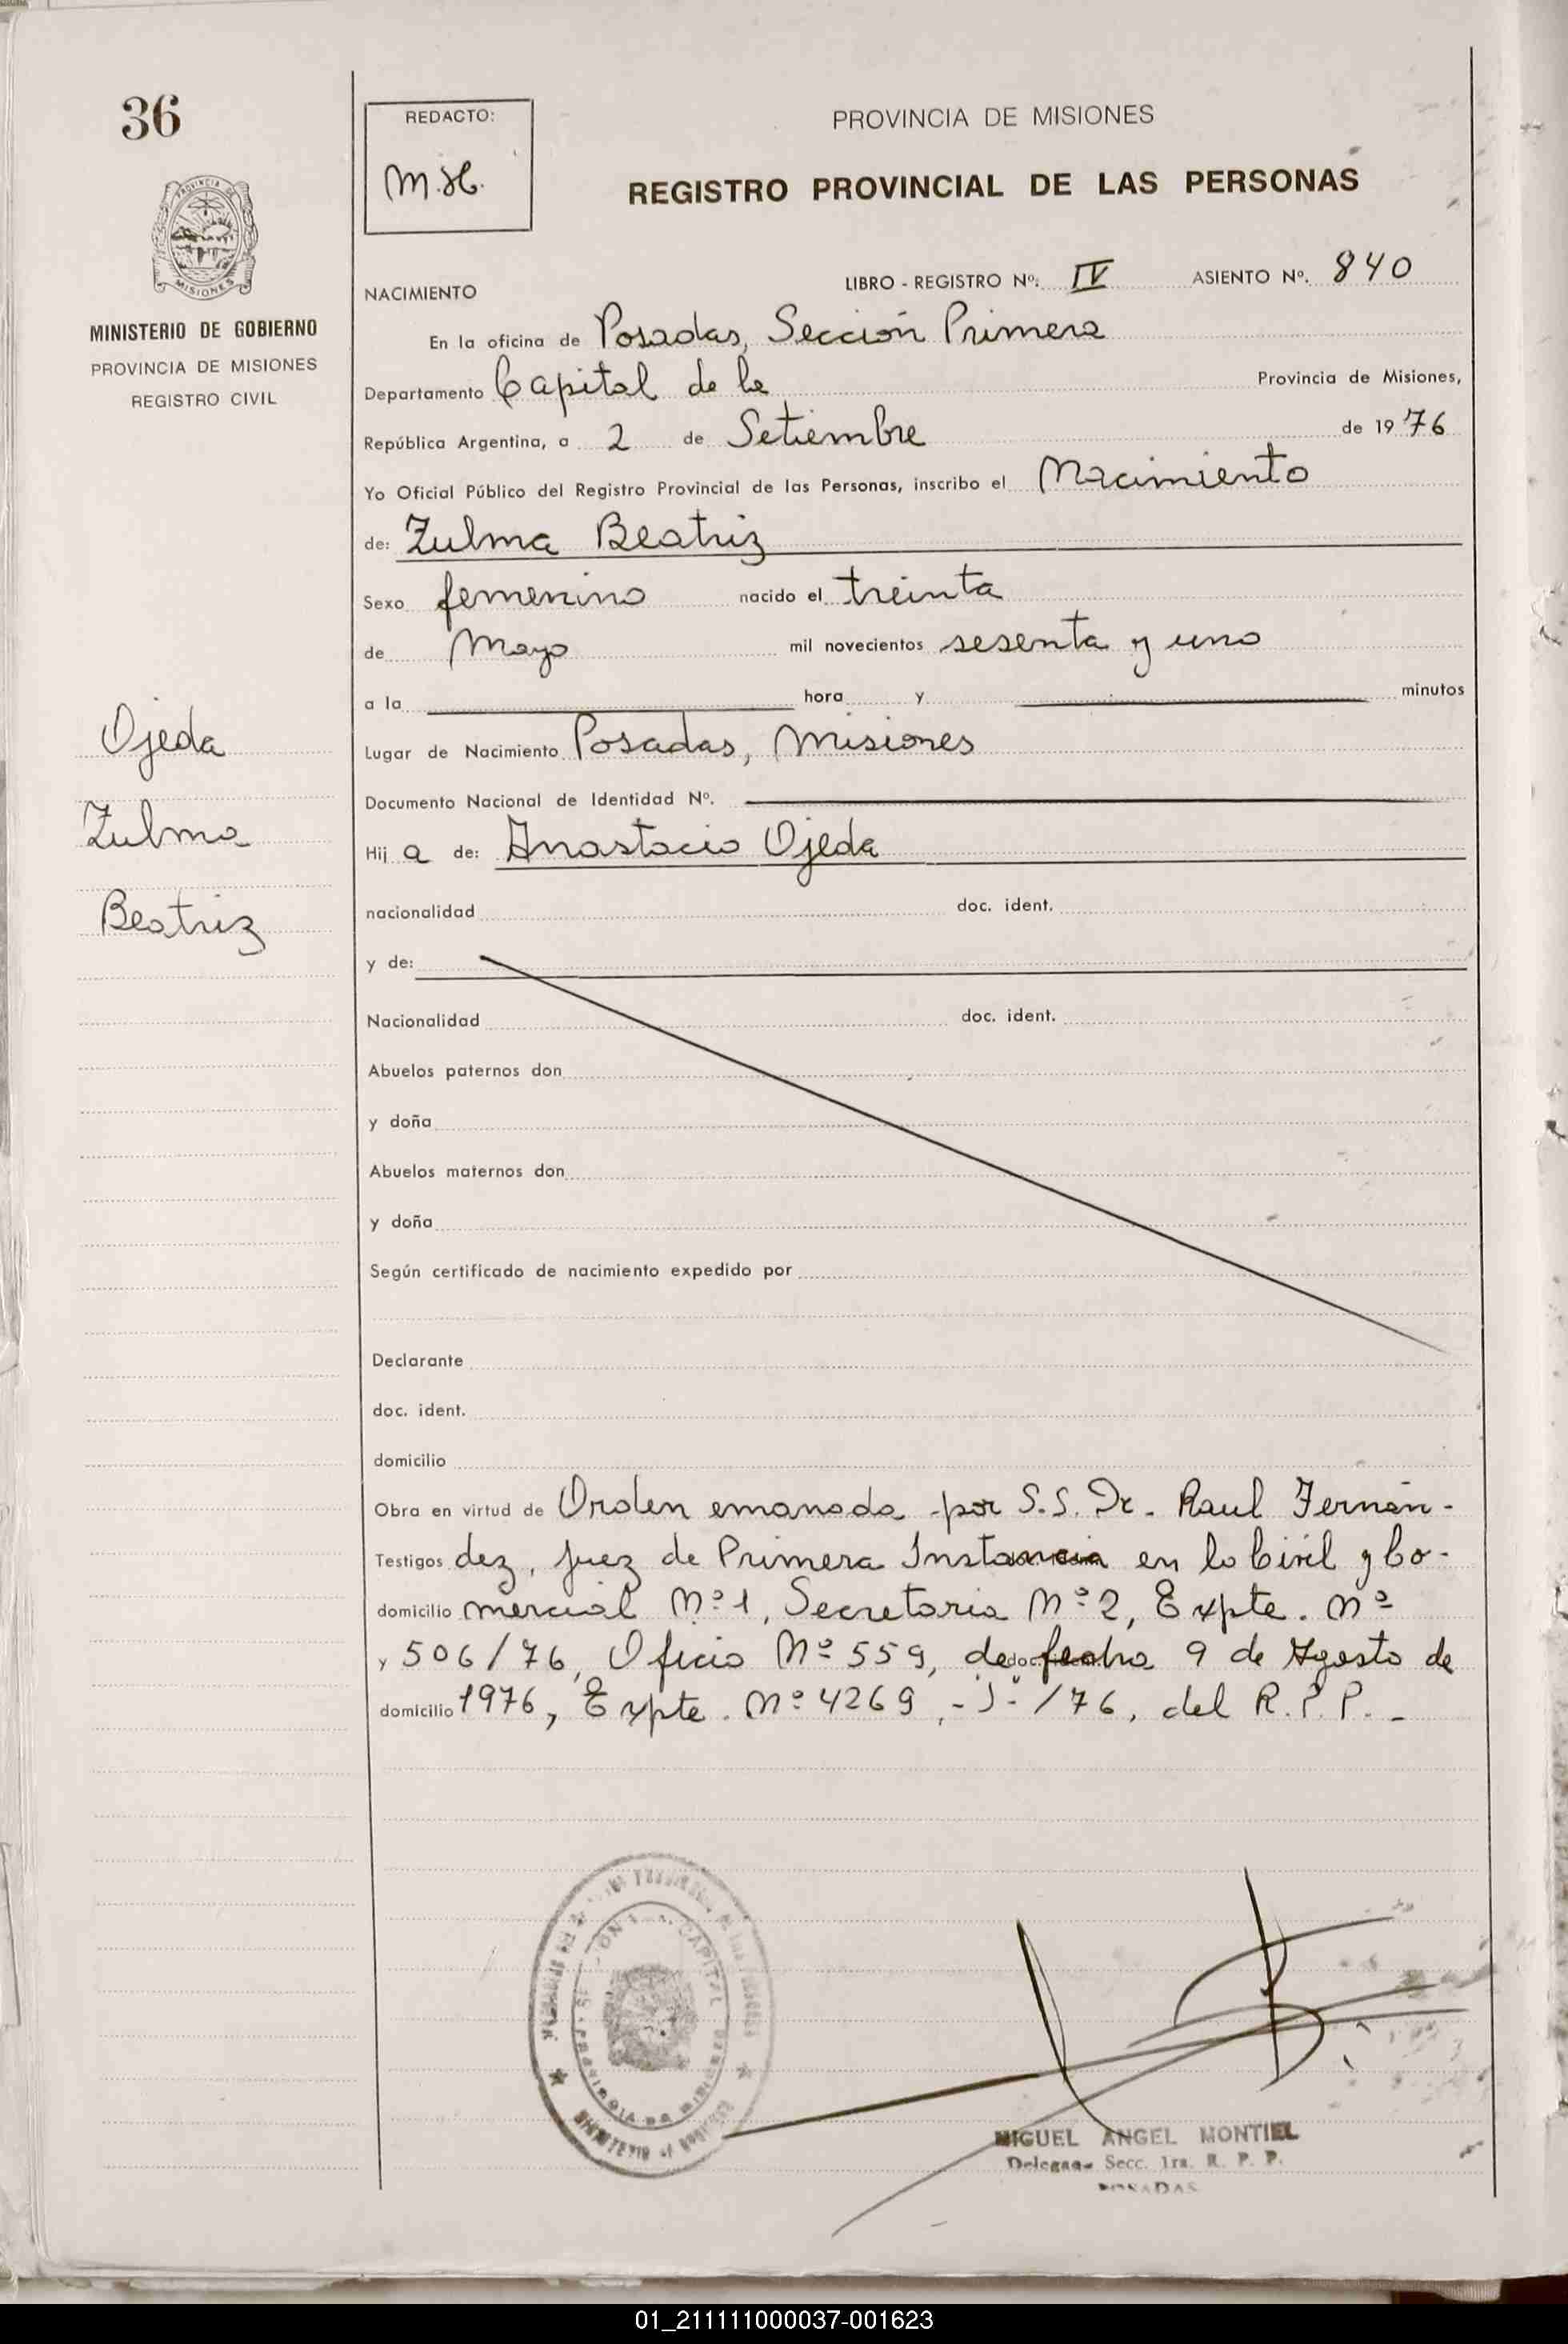 36
REDACTO:
M.H.
PROVINCIA DE MISIONES
REGISTRO PROVINCIAL DE LAS PERSONAS
MISIONES
MINISTERIO DE GOBIERNO
PROVINCIA DE MISIONES
REGISTRO CIVIL
NACIMIENTO
LIBRO - REGISTRO Nº: IV ASIENTO Nº. 840
En la oficina de Posadas, Sección Primera
Departamento Capital de la Provincia de Misiones,
República Argentina, a 2 de Setiembre de 1976
Yo Oficial Público del Registro Provincial de las Personas, inscribo el Nacimiento
de: Zulma Beatriz
Sexo femenino nacido el treinta
de Mayo mil novecientos sesenta y uno
a la hora y minutos
Ojeda
Zulma
Beatriz
Lugar de Nacimiento Posadas, Misiones
Documento Nacional de Identidad Nº.
Hij a de: Anastacio Ojeda
nacionalidad doc. ident.
y de:
Nacionalidad doc. ident.
Abuelos paternos don
y doña
Abuelos maternos don
y doña
Según certificado de nacimiento expedido por
Declarante
doc. ident.
domicilio
Obra en virtud de Orden emanada por S.S. Dr. Raul Fernán-
Testigos dez, Juez de Primera Instancia en lo Civil y Co-
domicilio mercial Nº 1, Secretaria Nº 2, Expte. Nº
y 506/76, Oficio Nº 559, de fecha 9 de Agosto de
domicilio 1976, Expte. Nº 4269, -J- /76, del R.P.P. -
CAPITAL
MIGUEL ANGEL MONTIEL
Delegado Secc. 1ra. R. P. P.
POSADAS
01_211111000037-001623